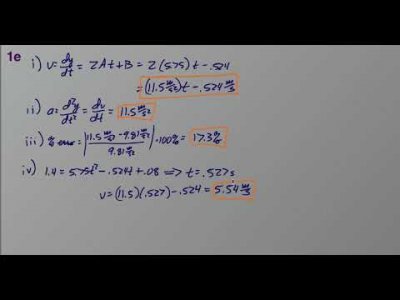 1e
i) v = dy/dt = 2At + B = 2(5.75)t - .524
= (11.5 m/s²)t - .524 m/s
ii) a = d²y/dt² = dv/dt = 11.5 m/s²
iii) % error = |11.5 m/s² - 9.81 m/s² / 9.81 m/s²| · 100% = 17.3%
iv) 1.4 = 5.75t² - .524t + .08 => t = .527s
v = (11.5)(.527) - .524 = 5.54 m/s